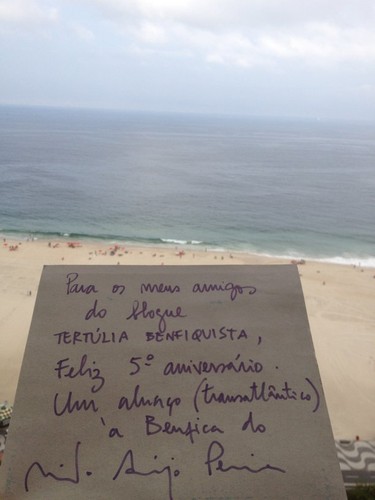 Para os meus amigos
do blogue
TERTÚLIA BENFIQUISTA,
Feliz 5.º aniversário.
Um abraço (transatlântico)
à Benfica do